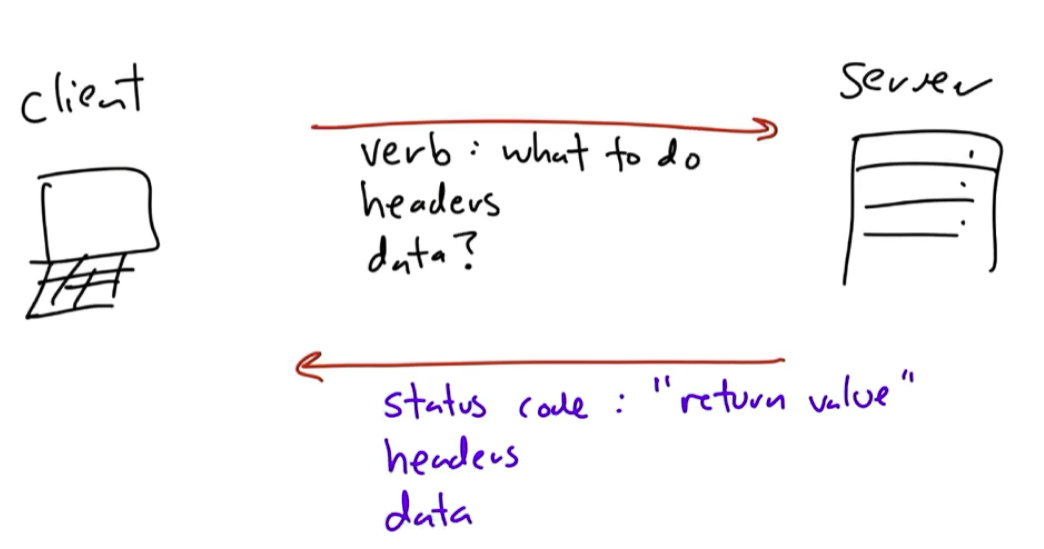 client
server
verb : what to do
headers
data?
status code : "return value"
headers
data